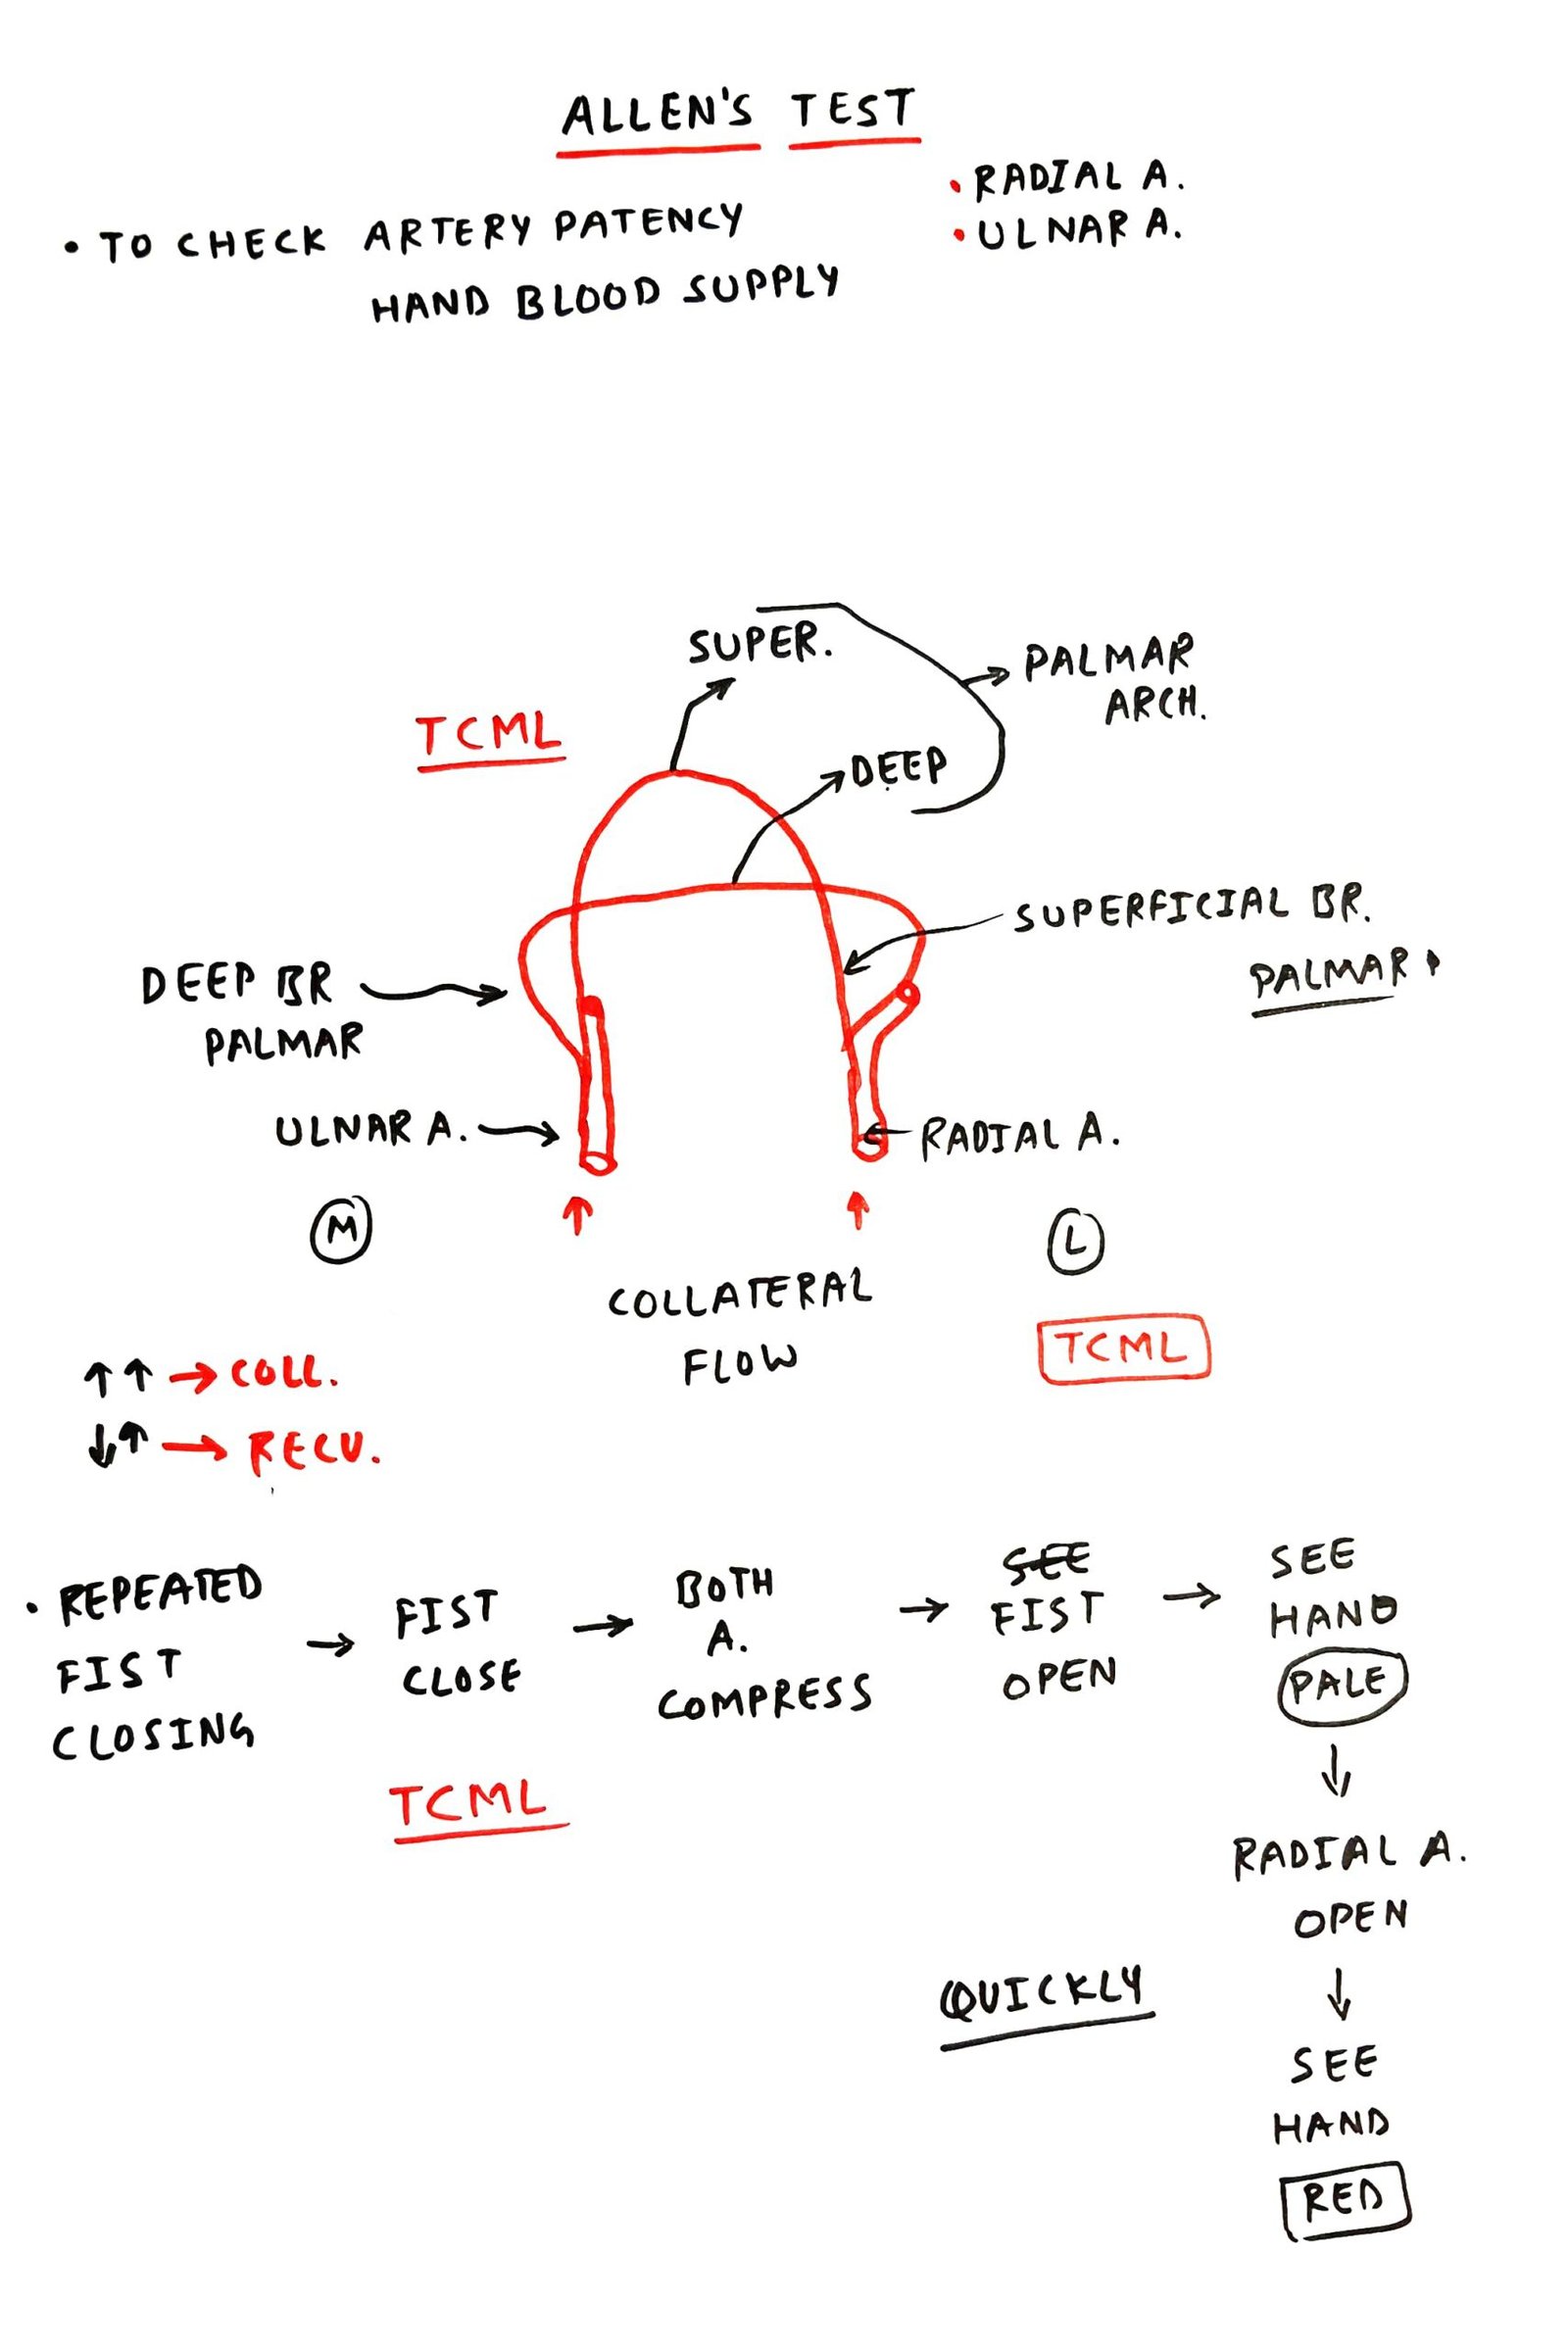 ALLEN'S TEST
• RADIAL A.
• ULNAR A.
• TO CHECK ARTERY PATENCY
HAND BLOOD SUPPLY
SUPER.
PALMAR
ARCH.
TCML
DEEP
SUPERFICIAL BR.
PALMAR
DEEP BR
PALMAR
ULNAR A.
RADIAL A.
M
L
COLLATERAL
FLOW
TCML
↑↑ → COLL.
↓↑ → RECU.
• REPEATED
FIST
CLOSING
→ FIST
CLOSE
→ BOTH
A.
COMPRESS
→ SEE
FIST
OPEN
→ SEE
HAND
PALE
↓
TCML
RADIAL A.
OPEN
↓
QUICKLY
SEE
HAND
RED